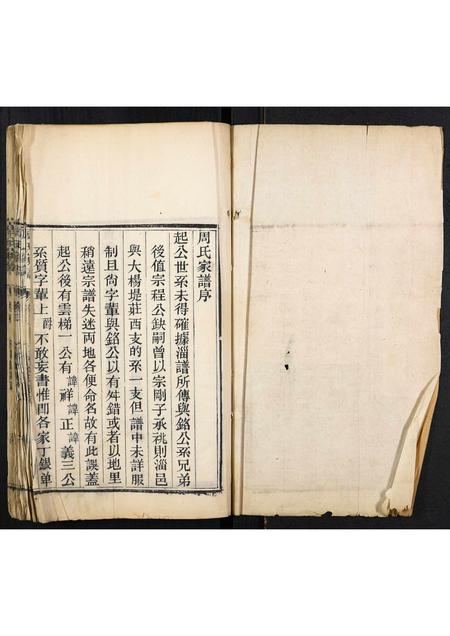 周氏家譜序
起公世系未得確據淄譜所傳與銘公系兄弟
後值宗程公缺嗣曾以宗剛子承祧則淄邑
與大楊堤莊西支的系一支但譜中未詳服
制且尙字輩與銘公以有舛錯或者以地里
稍遠宗譜失迷两地各便命名故有此誤蓋
起公後有雲梯一公有諱祥諱正諱義三公
系質字輩上 不敢妄書惟問各家丁銀单